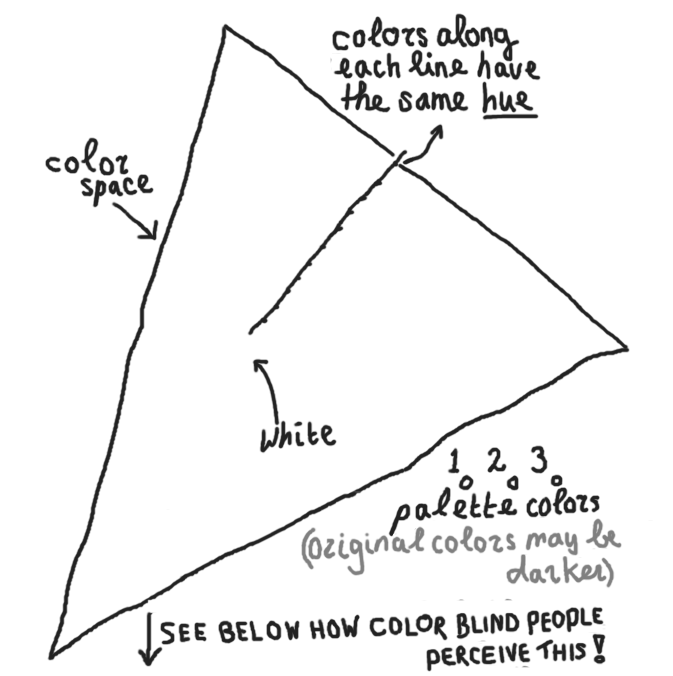 colors along
each line have
the same hue
color
space
white
1 2 3
palette colors
(original colors may be
darker)
SEE BELOW HOW COLOR BLIND PEOPLE
PERCEIVE THIS!